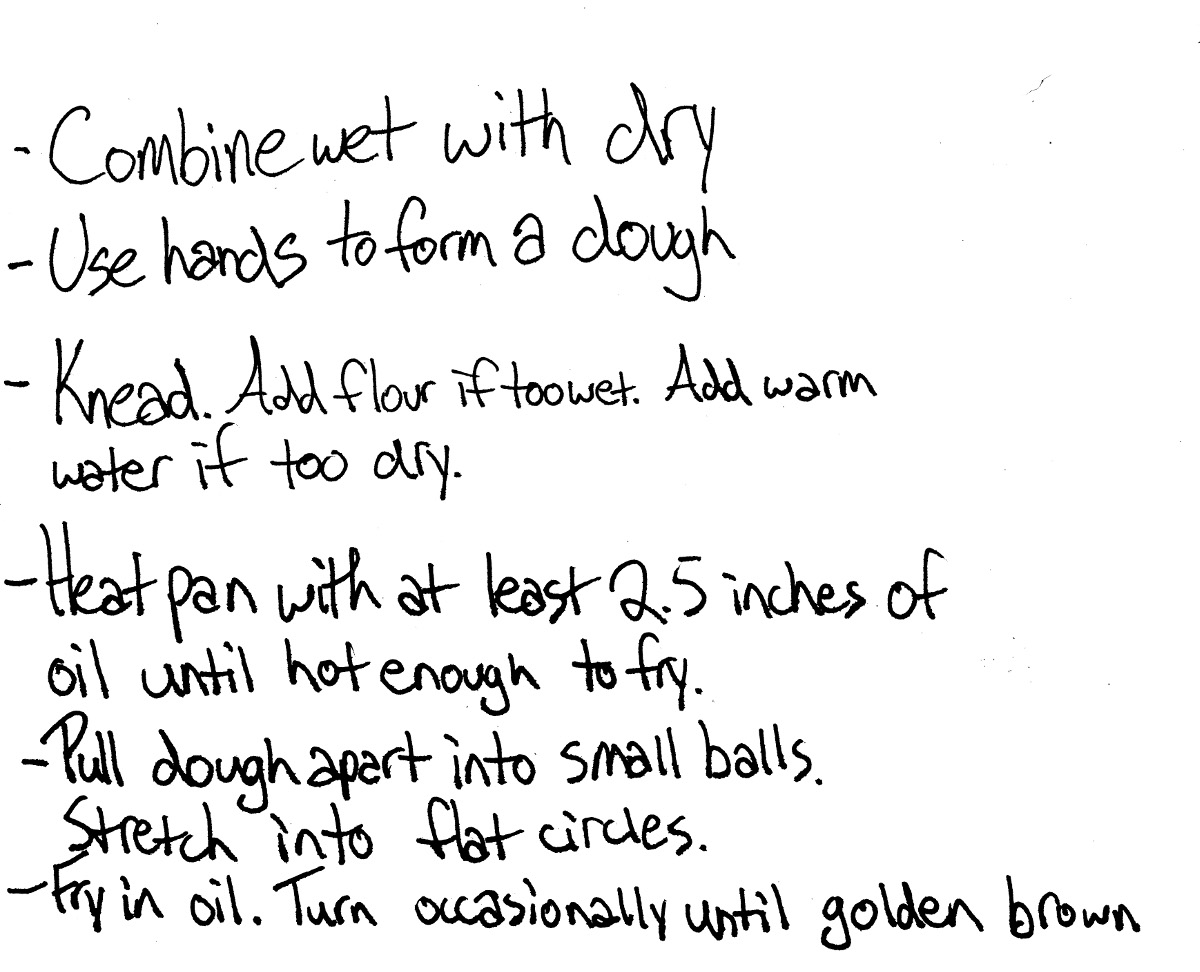 - Combine wet with dry
- Use hands to form a dough
- Knead. Add flour if too wet. Add warm
water if too dry.
- Heat pan with at least 2.5 inches of
oil until hot enough to fry.
- Pull dough apart into small balls.
Stretch into flat circles.
- Fry in oil. Turn occasionally until golden brown